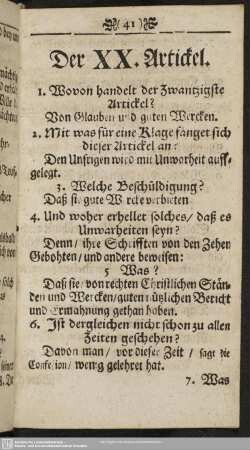 ( 41 )
Der XX. Artickel.
1. Wovon handelt der Zwantzigste
Artickel?
Von Glauben und guten Wercken.
2. Mit was für eine Klage fänget sich
dieser Artickel an?
Den Unsrigen wird mit Unwarheit auff-
gelegt.
3. Welche Beschüldigung?
Daß sie gute Wercke verbieten
4. Und woher erhellet solches/ daß es
Unwarheiten seyn?
Denn/ ihre Schrifften von den Zehen
Gebohten/ und andere beweisen:
5 Was?
Daß sie/ von rechten Christlichen Stän-
den und Wercken/ guten nützlichen Bericht
und Ermahnung gethan haben.
6. Ist dergleichen nicht schon zu allen
Zeiten geschehen?
Davon man/ vor dieser Zeit/ sagt die
Confession/ wenig gelehret hat.
7. Was